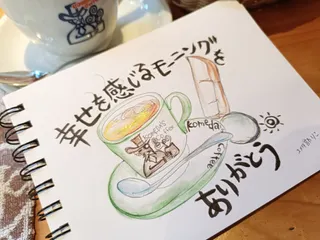 幸せを感じるモーニングを
Komeda
coffee
ありがとう